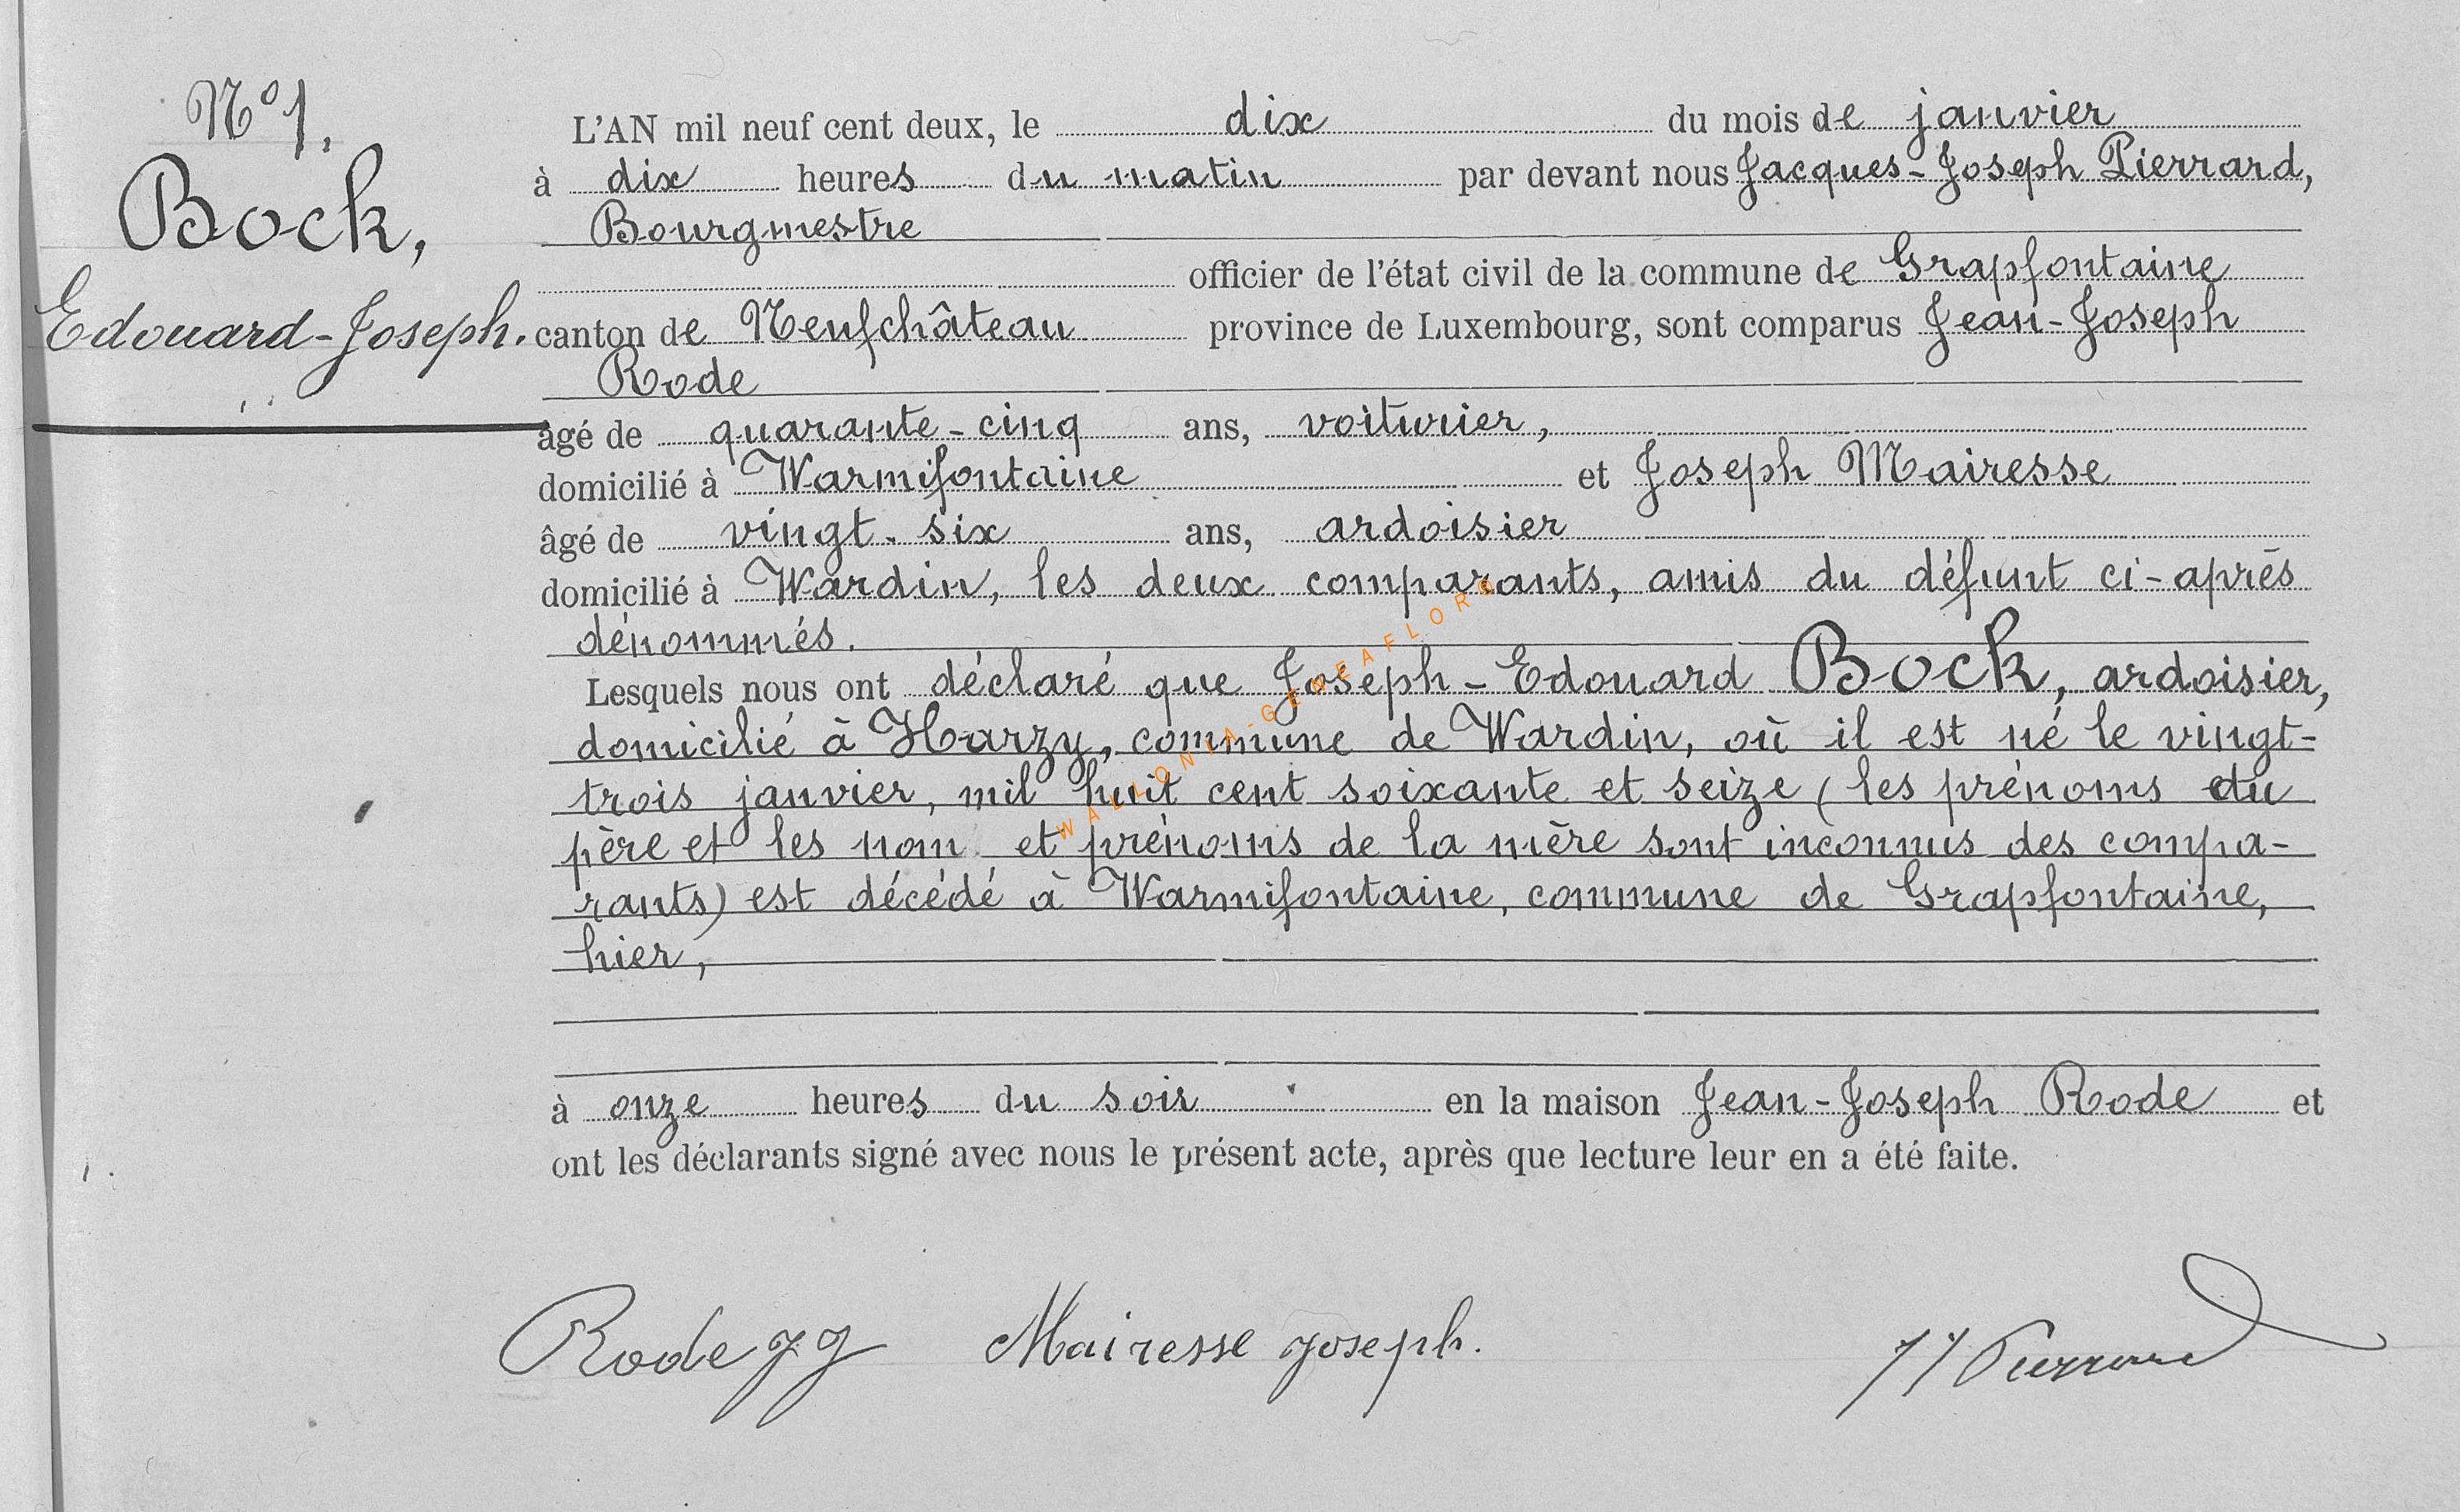 N° 1.
Bock,
Edouard-Joseph.
L'AN mil neuf cent deux, le dix du mois de janvier
à dix heures du matin par devant nous Jacques-Joseph Pierrard,
Bourgmestre
officier de l'état civil de la commune de Grapfontaine
canton de Neufchâteau province de Luxembourg, sont comparus Jean-Joseph
Rode
âgé de quarante-cinq ans, voiturier,
domicilié à Warmifontaine et Joseph Mairesse
âgé de vingt-six ans, ardoisier
domicilié à Wardin, les deux comparants, amis du défunt ci-après
dénommés.
Lesquels nous ont déclaré que Joseph-Edouard Bock, ardoisier,
domicilié à Harzy, commune de Wardin, où il est né le vingt-
trois janvier, mil huit cent soixante et seize (les prénoms du
père et les nom et prénoms de la mère sont inconnus des compa-
rants) est décédé à Warmifontaine, commune de Grapfontaine,
hier,
à onze heures du soir en la maison Jean-Joseph Rode et
ont les déclarants signé avec nous le présent acte, après que lecture leur en a été faite.
Rode JJ Mairesse Joseph. JJ Pierrard
WALLONIA-GENEAFLORE